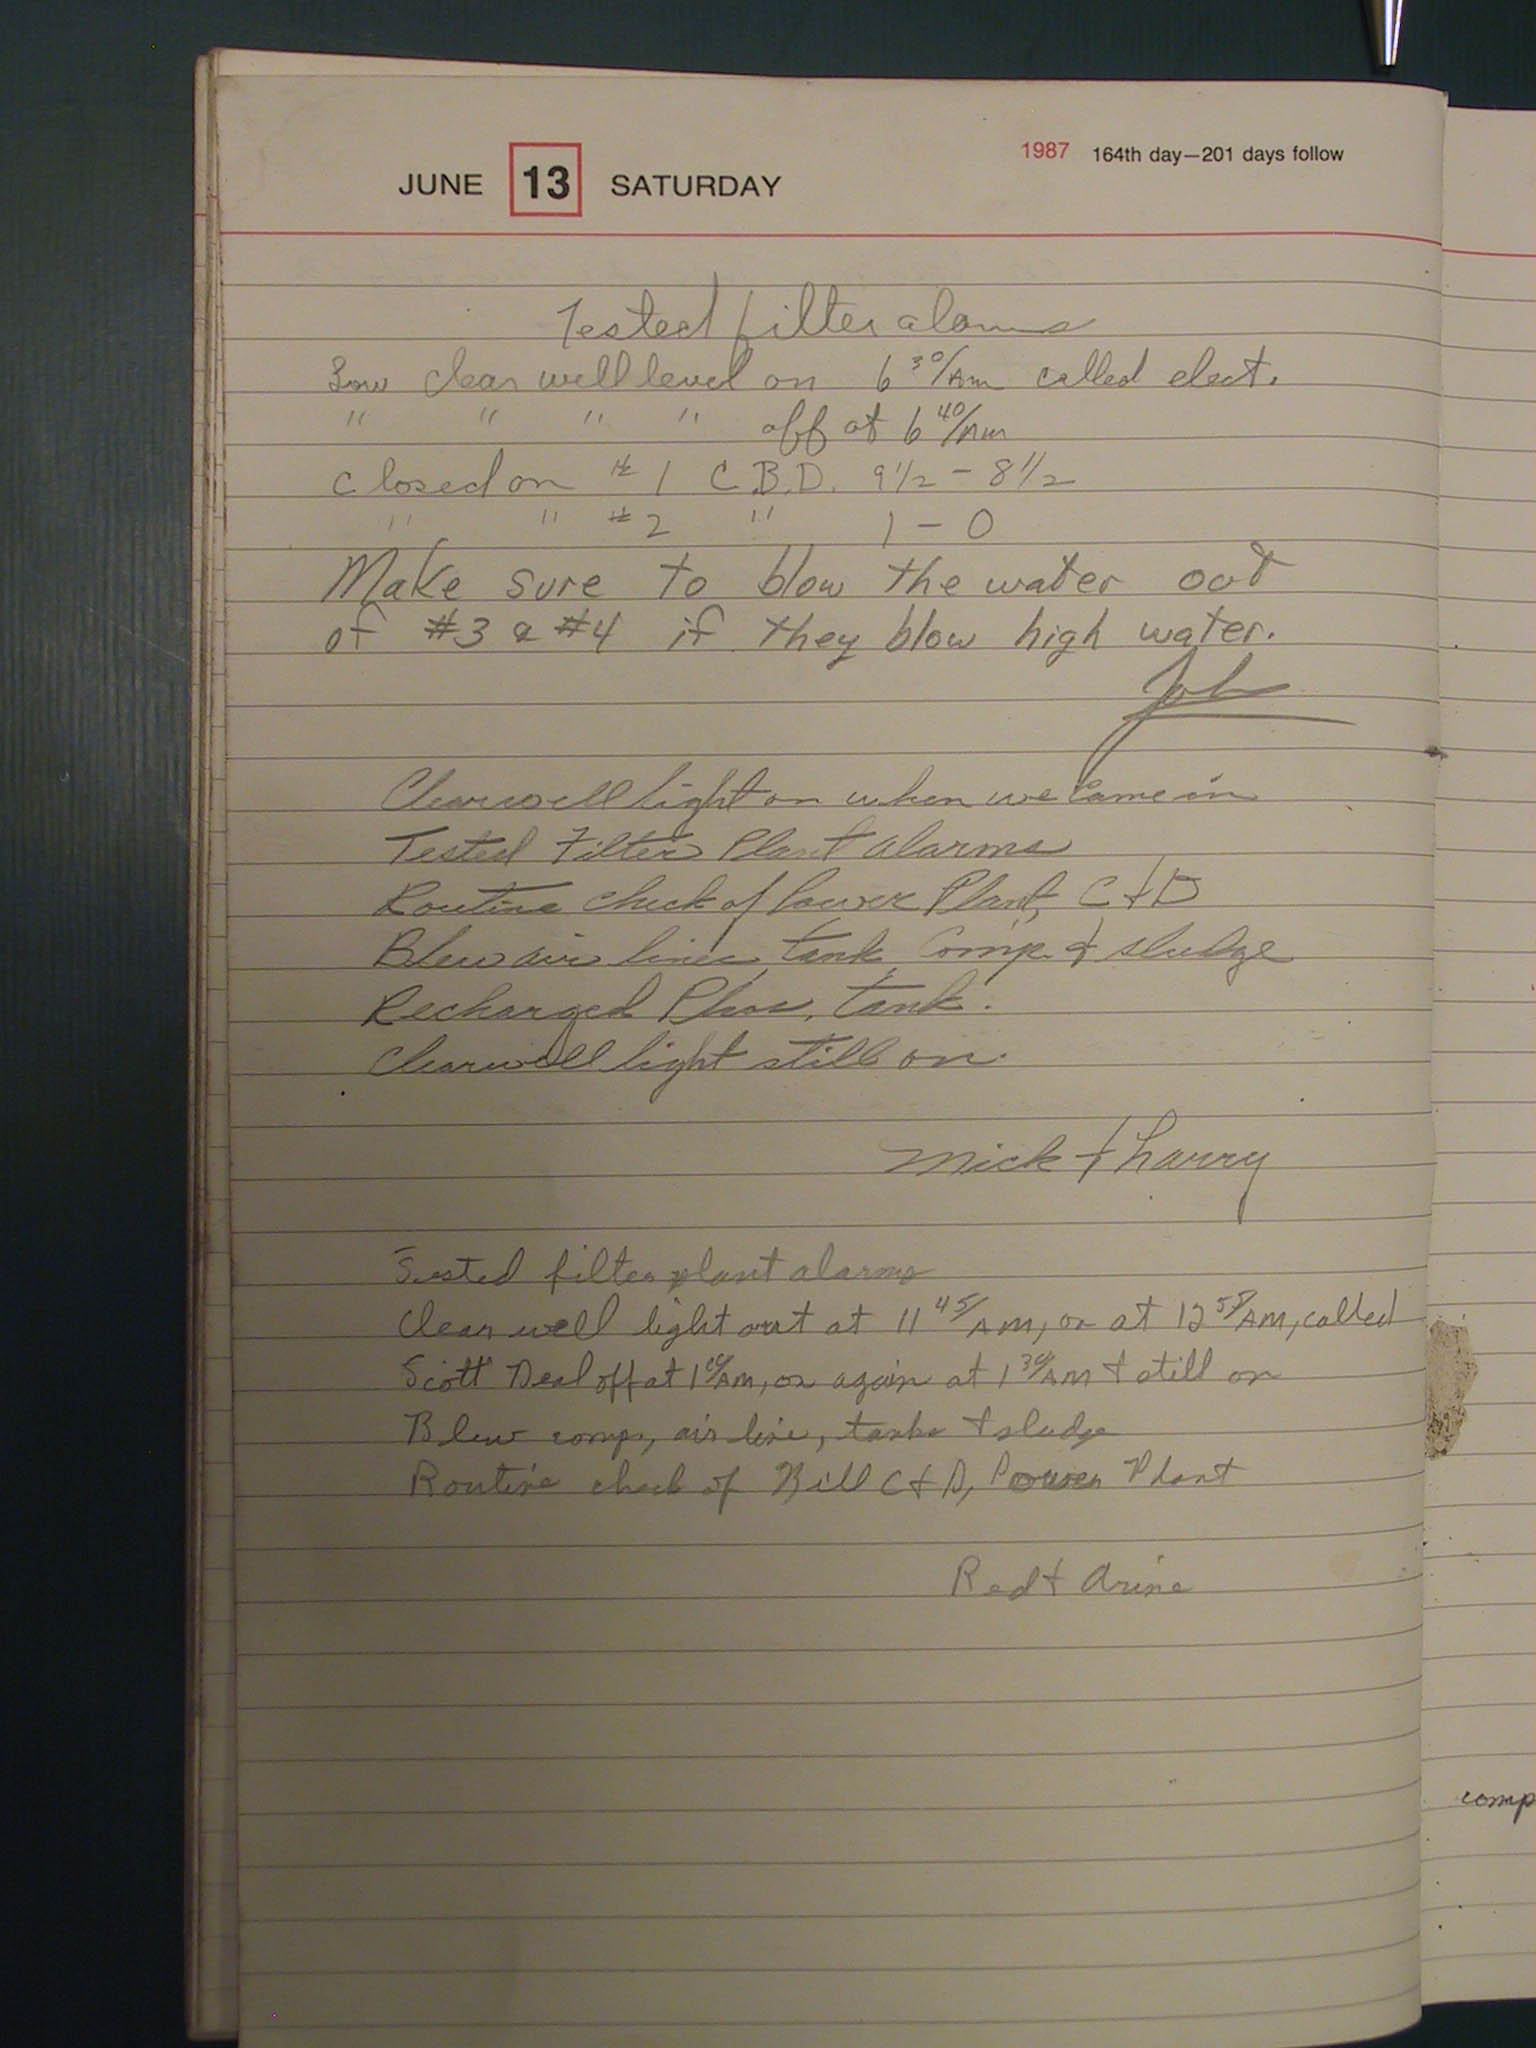 1987 164th day—201 days follow
JUNE 13 SATURDAY
Tested filter alarms
Low clear well level on 6 30/AM called elect.
" " " " off at 6 40/AM
Closed on # 1 C.B.D. 9 1/2 - 8 1/2
" " # 2 " 1 - 0
Make sure to blow the water out
of #3 & #4 if they blow high water.
John
Clearwell light on when we came in
Tested Filter Plant alarms
Routine check of Power Plant, C & D
Blew air lines, tank, Comp. & sludge
Recharged Phos. tank.
Clearwell light still on.
Mick & Harry
Tested filter plant alarms
Clear well light out at 11 45/AM, on at 12 58/AM, called
Scott Deal off at 1 10/AM, on again at 1 30/AM & still on
Blew comp, air line, tanks & sludge
Routine check of Bill C & D, Power Plant
Red &
comp